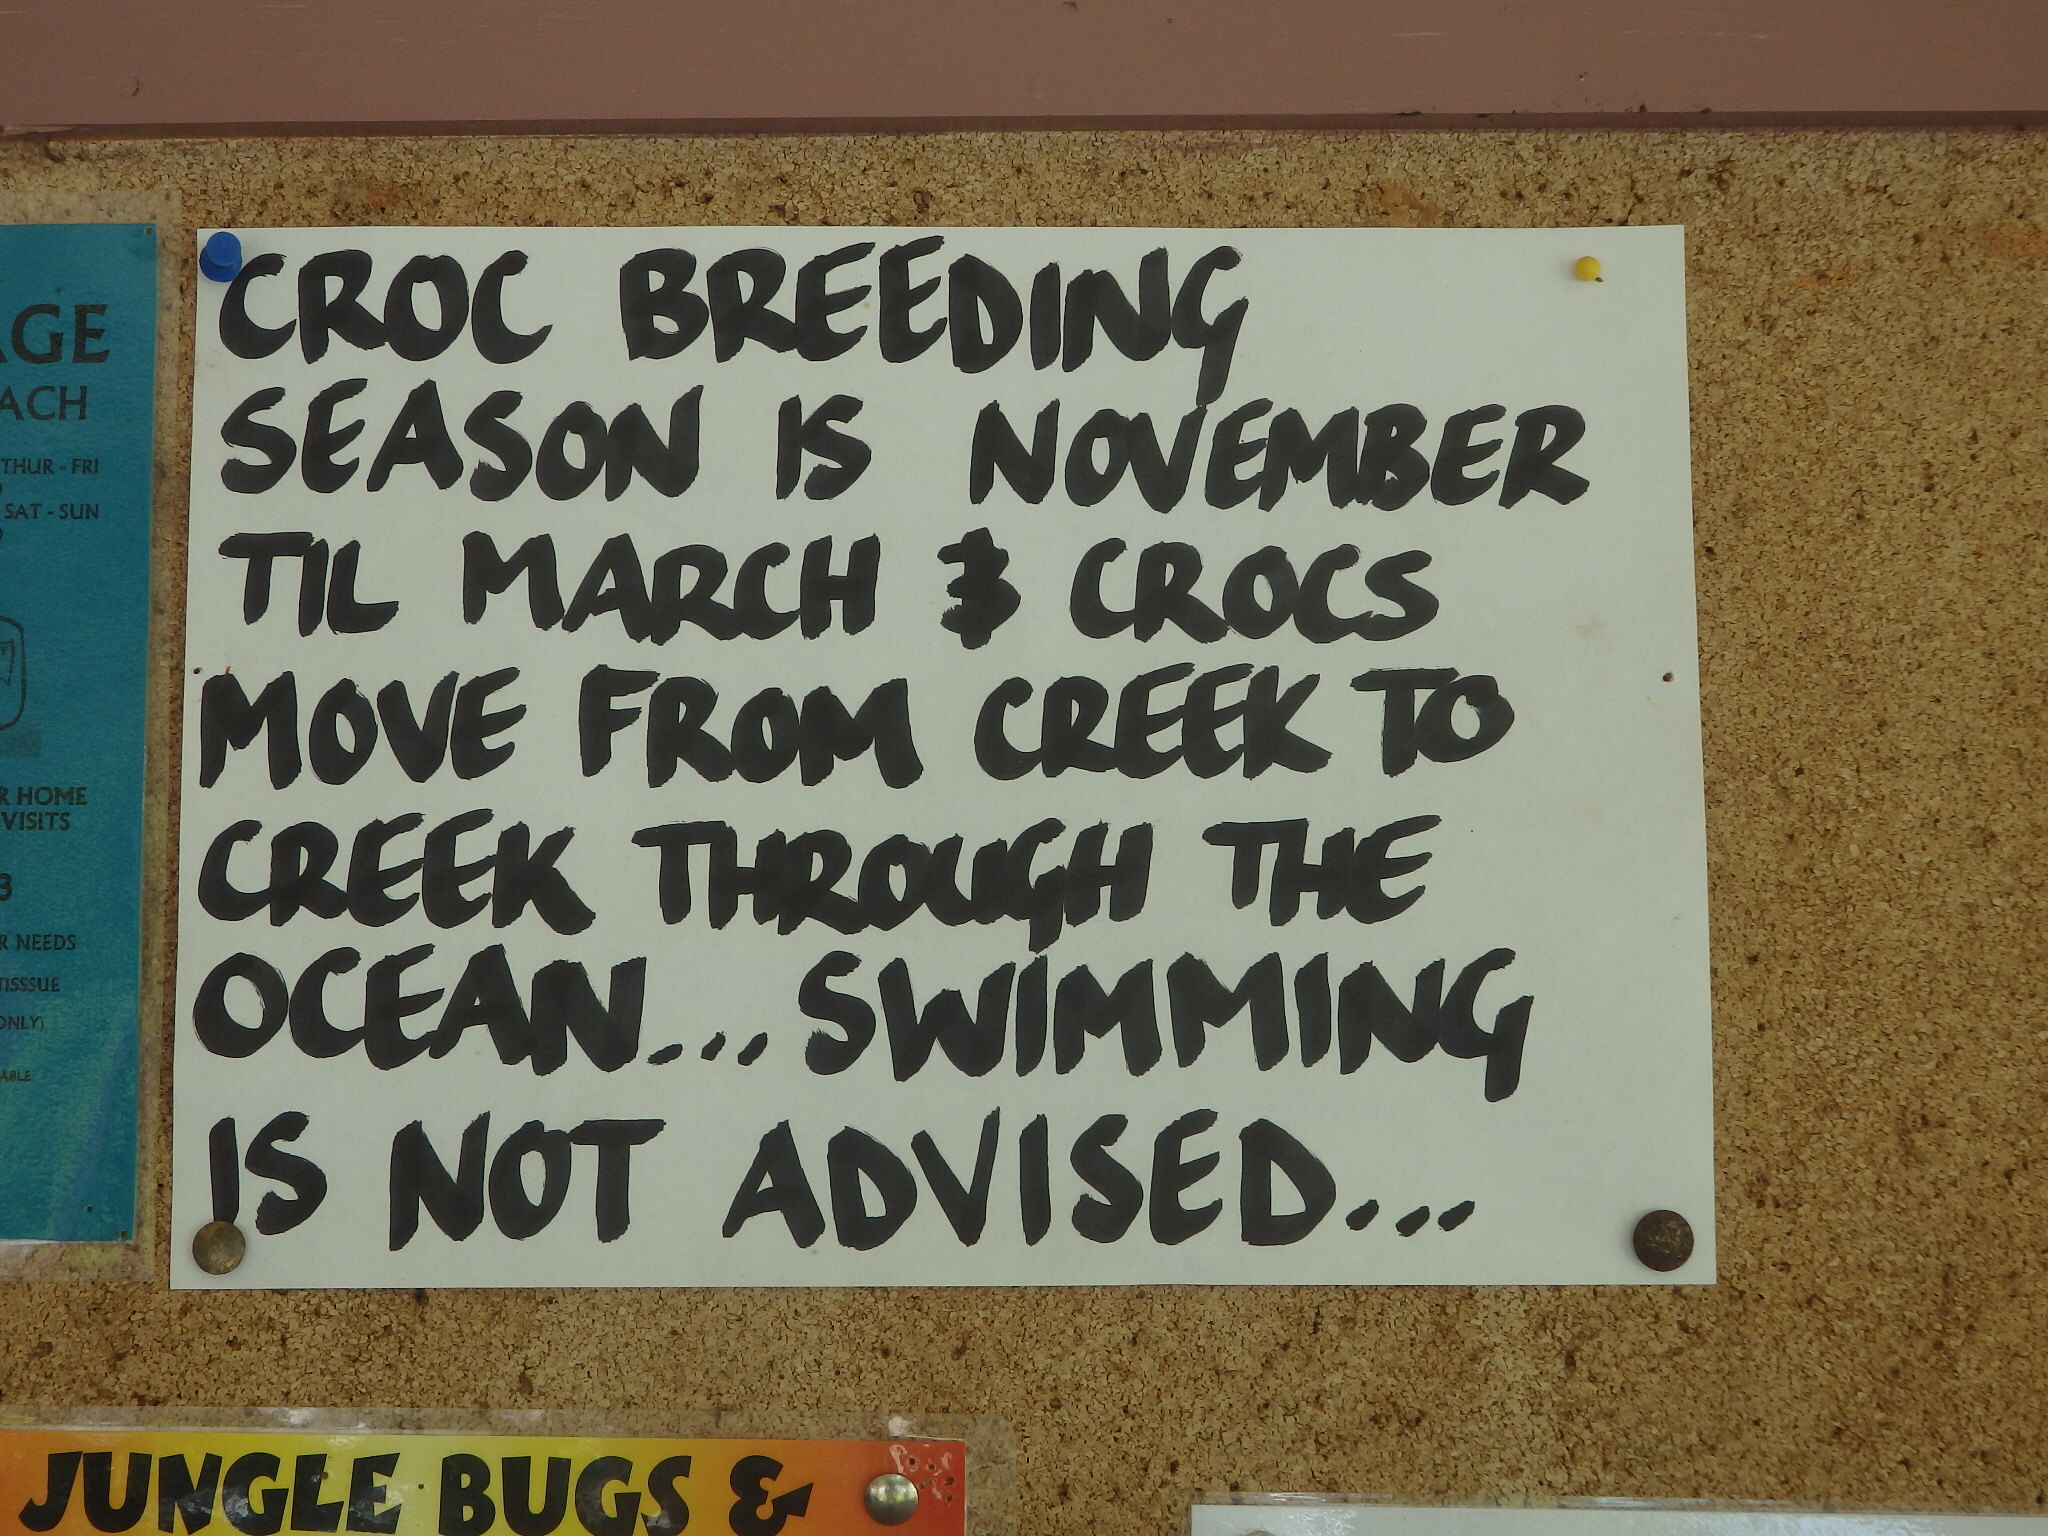 CROC BREEDING
SEASON IS NOVEMBER
TIL MARCH & CROCS
MOVE FROM CREEK TO
CREEK THROUGH THE
OCEAN... SWIMMING
IS NOT ADVISED...
AGE
ACH
THUR - FRI
SAT - SUN
R HOME
VISITS
3
R NEEDS
TISSSUE
ONLY)
ABLE
JUNGLE BUGS &